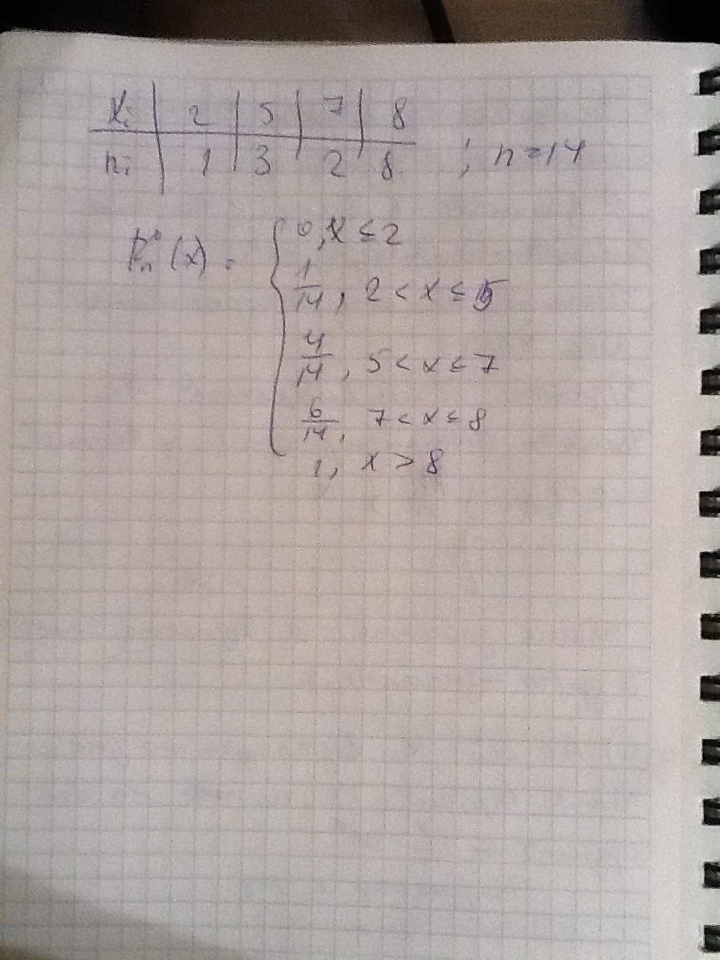 xᵢ | 2 | 5 | 7 | 8
nᵢ | 1 | 3 | 2 | 8 ; n=14
Fₙ*(x) = {
0, x ≤ 2
1/14, 2 < x ≤ 5
4/14, 5 < x ≤ 7
6/14, 7 < x ≤ 8
1, x > 8